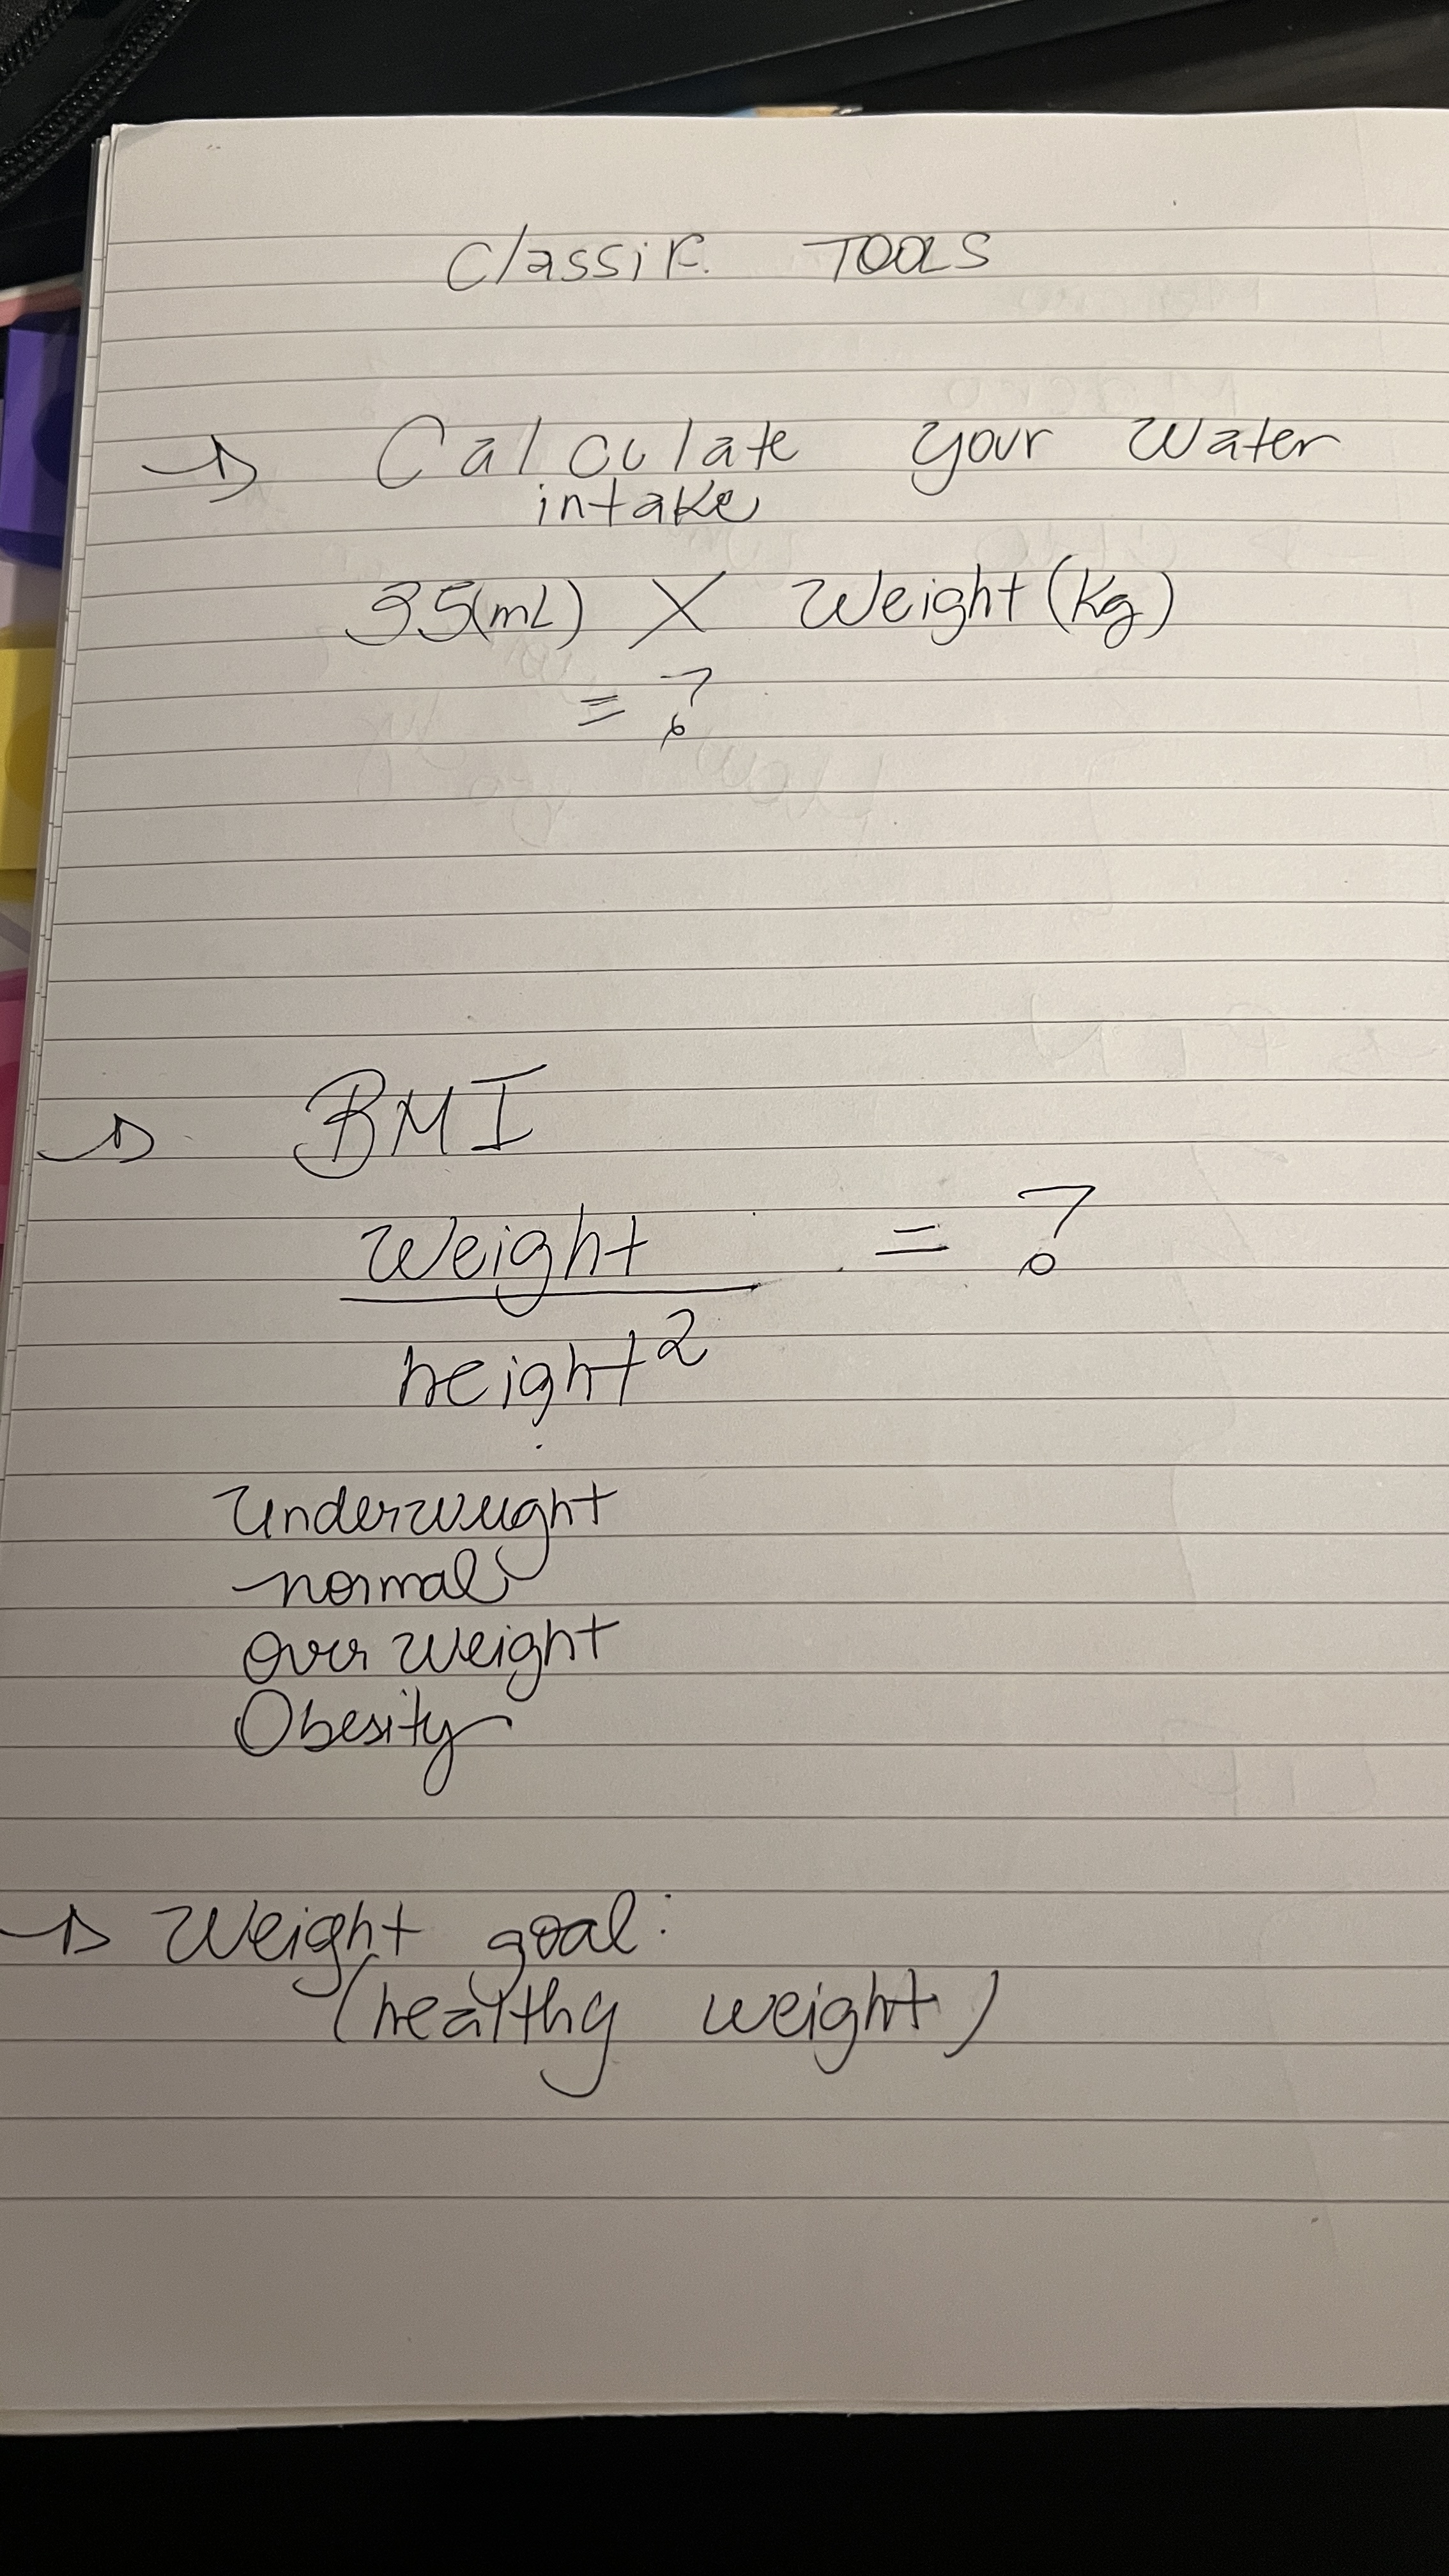 Classif. TOOLS
→ Calculate your water
intake
35(mL) X Weight (Kg)
= ?
→ BMI
Weight = ?
height²
Underweight
normal
over weight
Obesity
→ Weight goal:
(healthy weight)